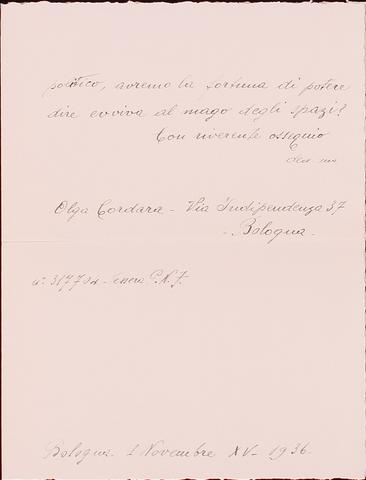 politico, avremo la fortuna di potere
dire evviva al mago degli spazi?
Con riverente ossequio
Olga Cordara - Via Indipendenza 37
- Bologna -
n° 317704 - Tessera P.N.F.
Bologna 1 Novembre XV - 1936.